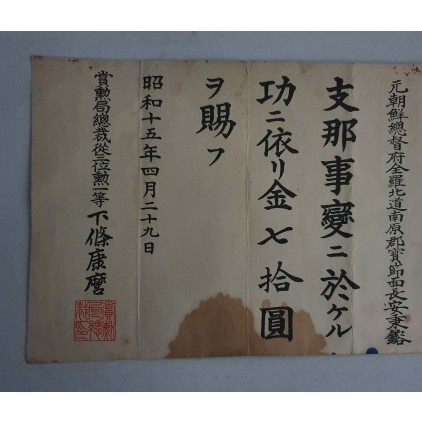 元朝鮮總督府全羅北道南原郡寶節面長安秉
支那事變ニ於ケル
功ニ依リ金七拾圓
ヲ賜フ
昭和十五年四月二十九日
賞勳局總裁從三位勳一等下條康麿